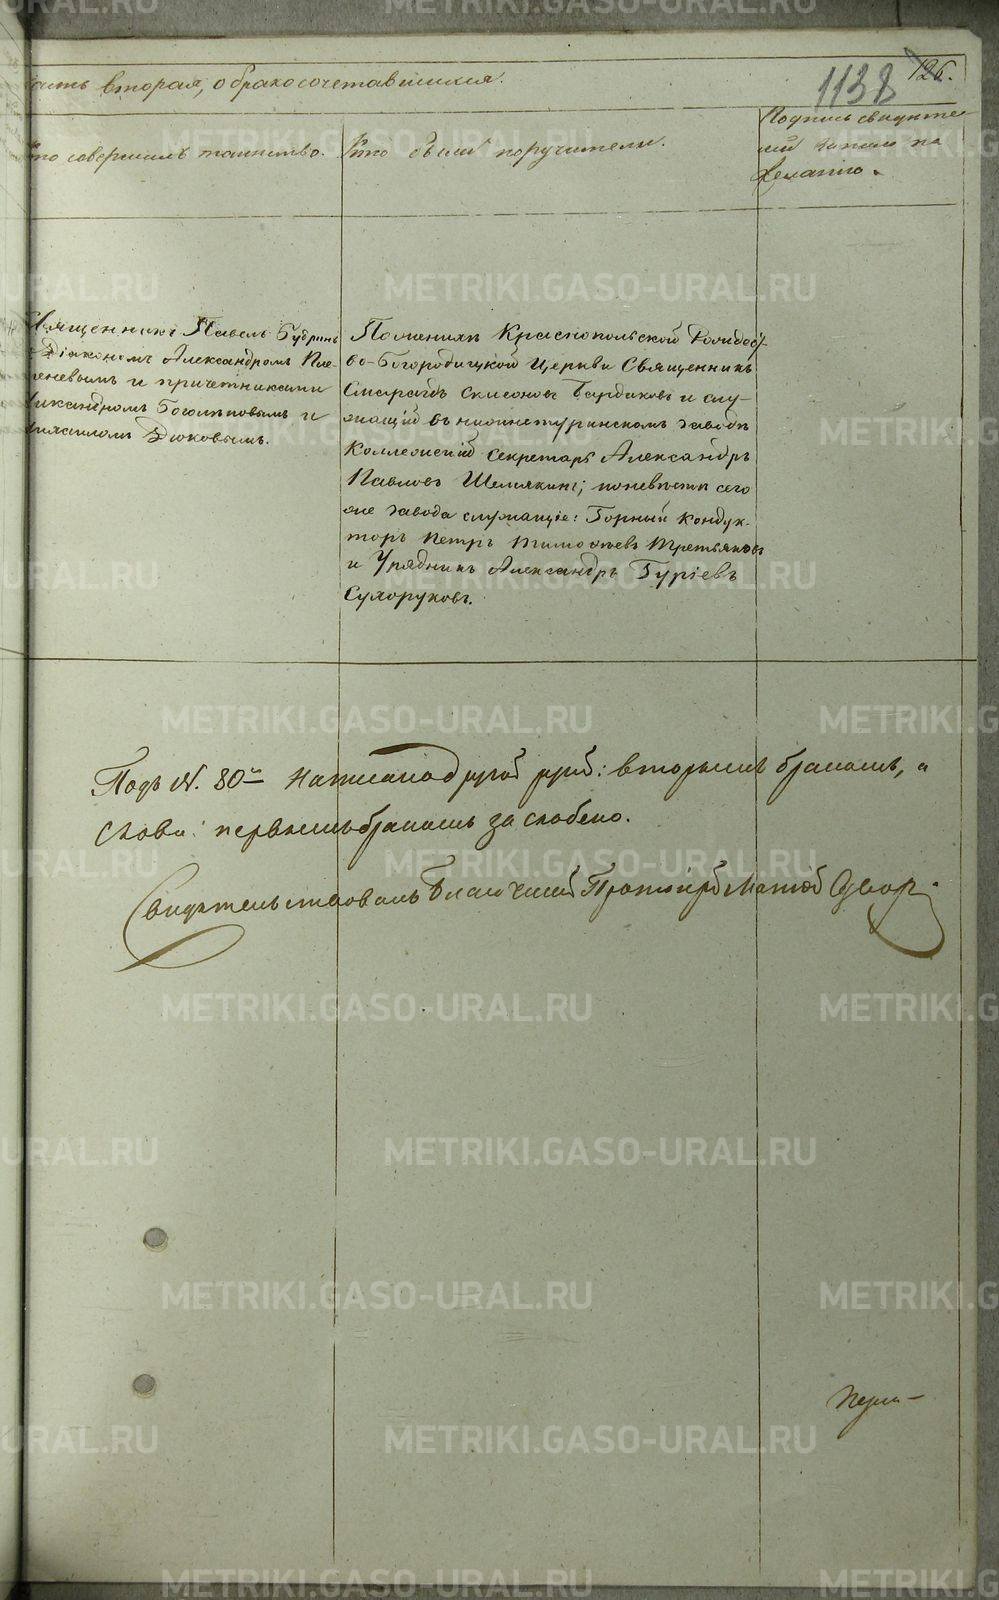 METRIKI.GASO-URAL.RU
часть вторая, о бракосочетавшихся.
1138
126.
Кто совершалъ таинство.
Кто были поручители.
Подпись свидѣте-
лей записи по
желанію.
Священникъ Павелъ
Діакономъ Александромъ Пле-
шевымъ и причетниками
Никандромъ Боголѣповымъ и
Михаиломъ Дюковымъ.
По женихѣ Краснопольской Рождест-
во-Богородицкой Церкви Священникъ
Смарагдъ и слу-
жащій въ нижнетуринскомъ заводѣ
Коллежскій Секретарь Александръ
Павловъ Шемякинъ; по невѣстѣ сего
же завода служащіе: Горный кондук-
торъ Петръ Тимофеевъ Третьяковъ
и Урядникъ Александръ Гуріевъ
Сухоруковъ.
Подъ N. 80мъ написано другой рукой: вторымъ бракомъ, а
слова: первымъ бракомъ заскоблено.
Свидѣтельствовалъ Благочинный Протоіерей
Перм-